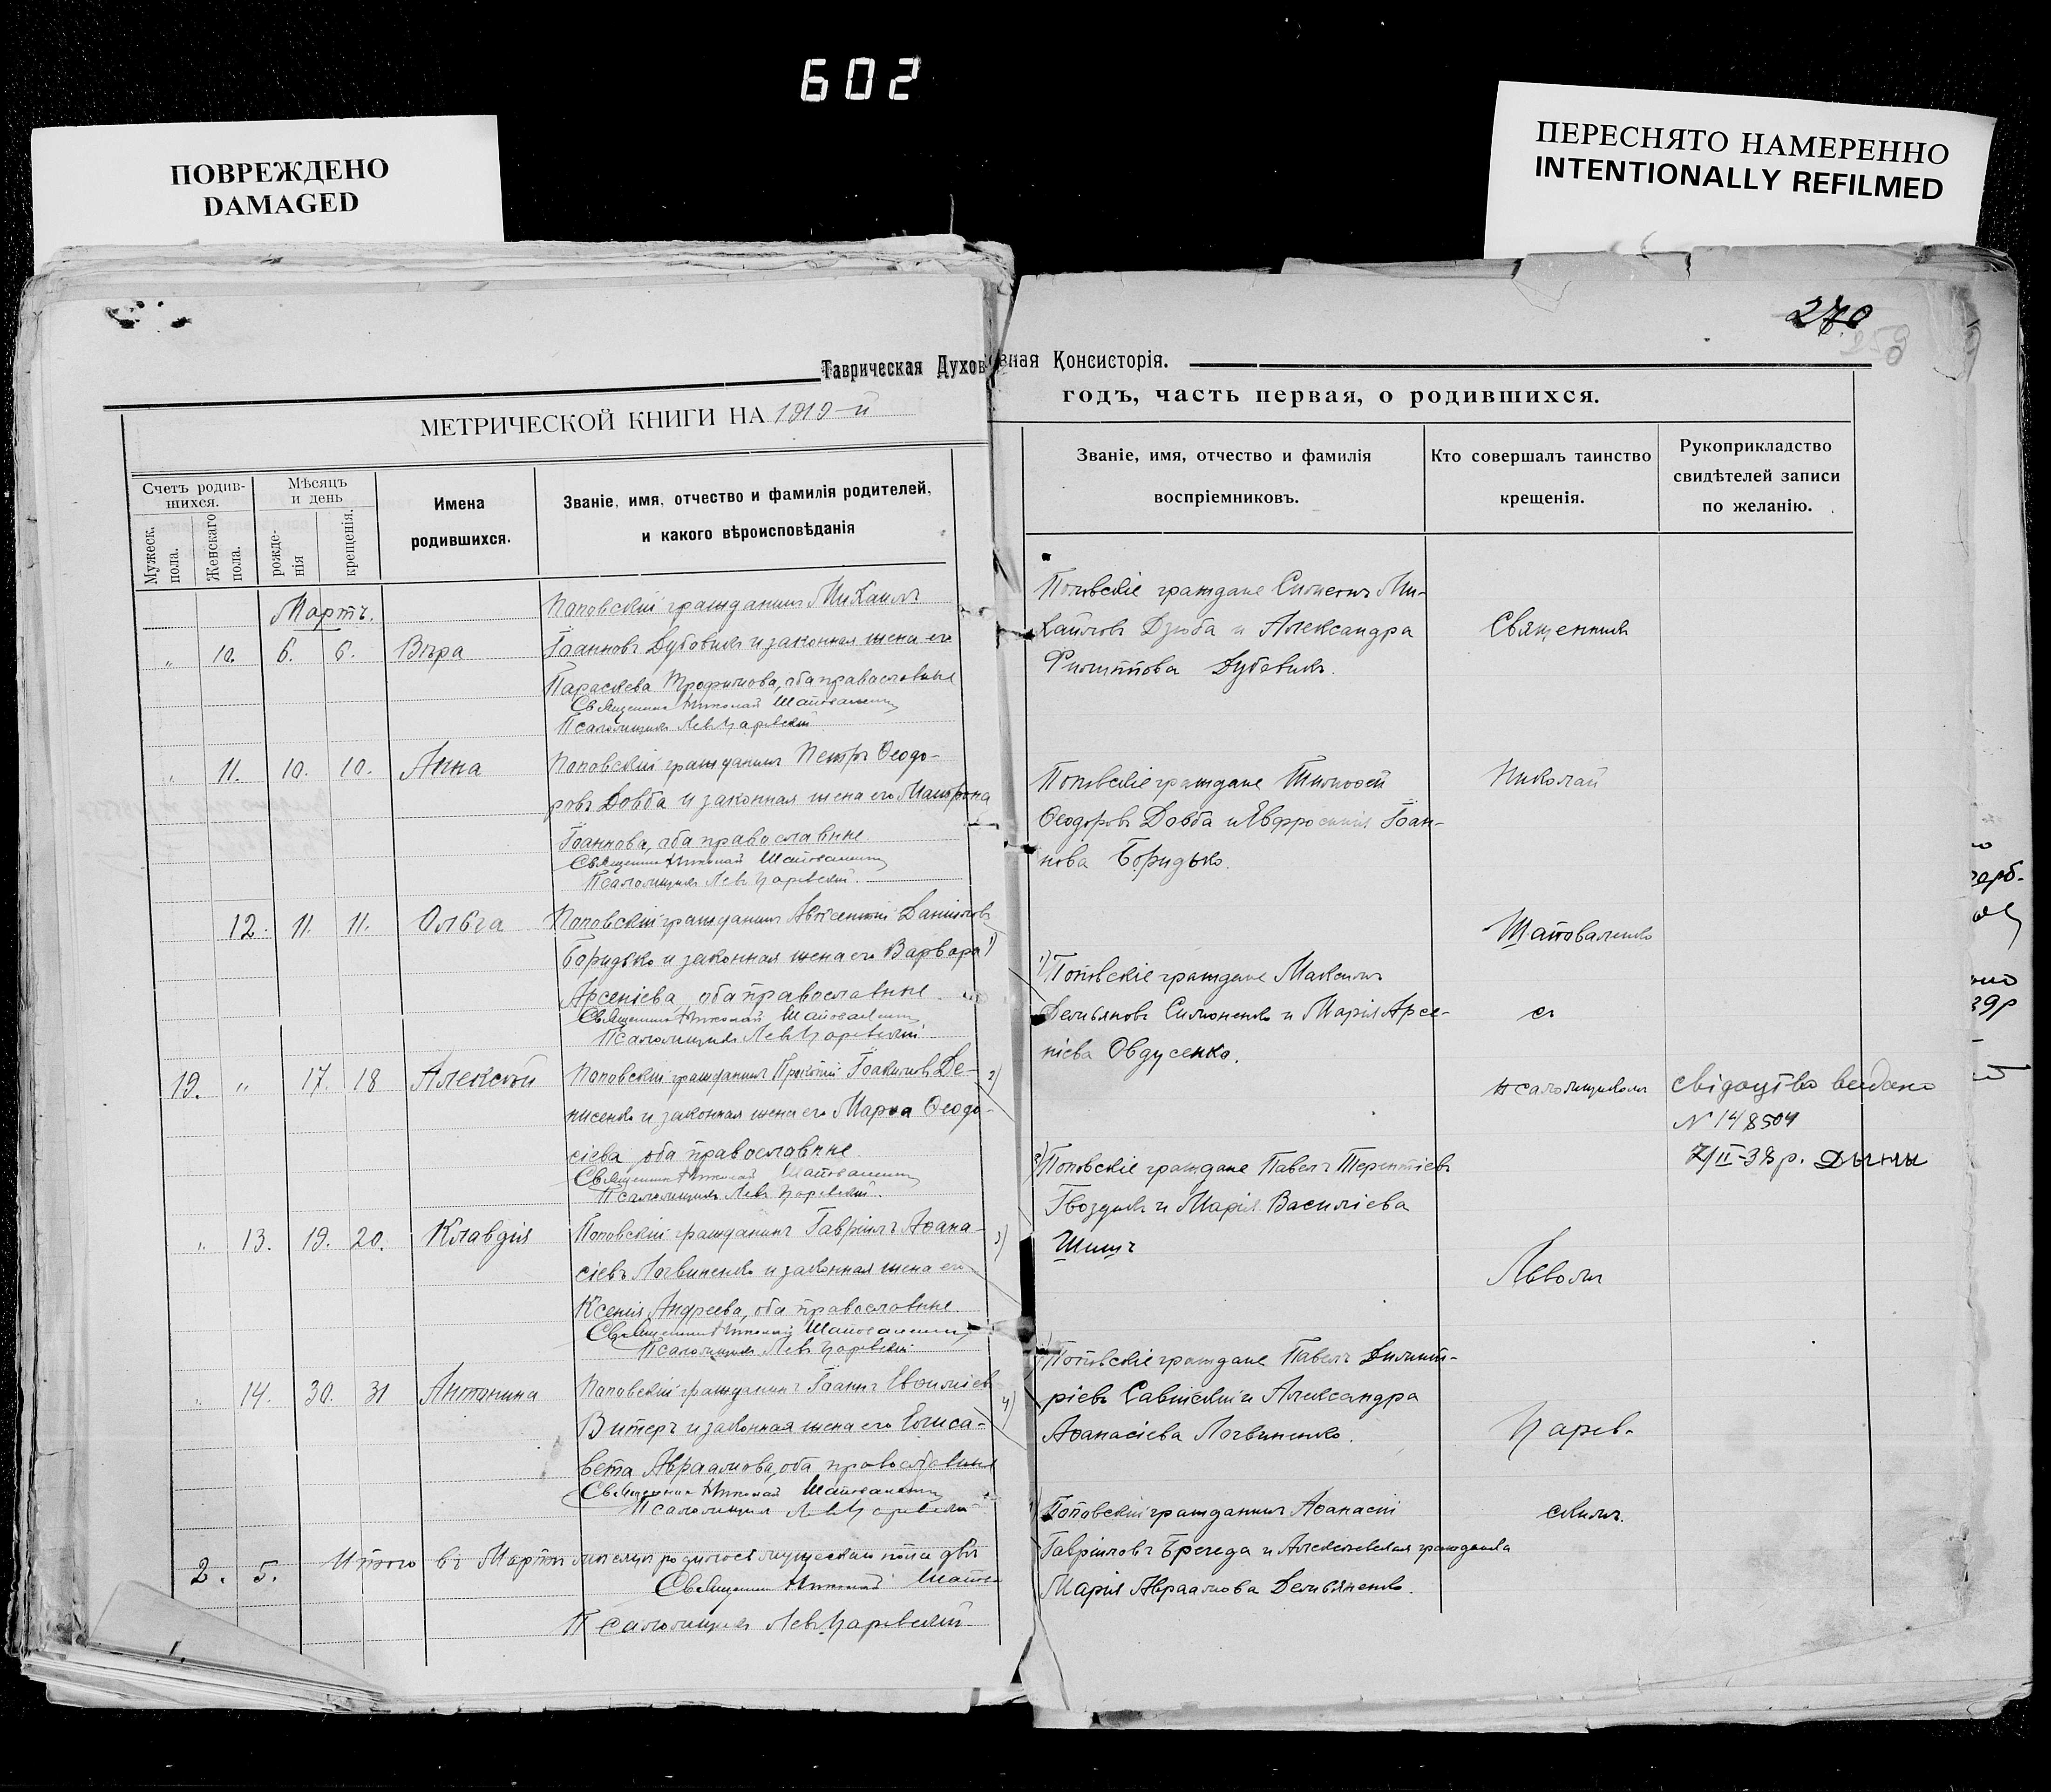 602
ПОВРЕЖДЕНО
DAMAGED
ПЕРЕСНЯТО НАМЕРЕННО
INTENTIONALLY REFILMED
270
Таврическая Духов
вная Консисторія.
МЕТРИЧЕСКОЙ КНИГИ НА 1919-й
годъ, часть первая, о родившихся.
Счетъ родив-
шихся.
Мужеск.
пола.
Женскаго
пола.
Мѣсяцъ
и день
рожде-
нія
крещенія.
Имена
родившихся.
Званіе, имя, отчество и фамилія родителей,
и какого вѣроисповѣданія
Званіе, имя, отчество и фамилія
воспріемниковъ.
Кто совершалъ таинство
крещенія.
Рукоприкладство
свидѣтелей записи
по желанію.
Мартъ.
„ 10. 6. 6. Вѣра
Поповскій гражданинъ Михаилъ
Іоанновъ Дубовикъ и законная жена его
Параскева Трофимова, оба православные
Священникъ Николай Шаповаленко
Псаломщикъ Левъ Царевскій
Поповскіе граждане Симеонъ Ми-
хайловъ Дзюба и Александра
Филиппова Дубовикъ.
„ 11. 10. 10. Анна
Поповскій гражданинъ Петръ Ѳеодо-
ровъ Довба и законная жена его Матрона
Іоаннова, оба православные.
Священникъ Николай Шаповаленко
Псаломщикъ Левъ Царевскій.
Поповскіе граждане Тимоѳей
Ѳеодоровъ Довба и Евфросинія Іоан-
нова Боридько.
12. 11. 11. Ольга
Поповскій гражданинъ Авксентій Даніиловъ
Боридько и законная жена его Варвара 1)
Арсеніева, оба православные.
Священникъ Николай Шаповаленко
Псаломщикъ Левъ Царевскій.
1) Поповскіе граждане Максимъ
Демьяновъ Симоненко и Марія Арсе-
ніева Овдусенко.
19. „ 17. 18 Алексѣй
Поповскій гражданинъ Прокопій Іоакимовъ Де- 2)
нисенко и законная жена его Марѳа Ѳеодо-
сіева, оба православные
Священникъ Николай Шаповаленко
Псаломщикъ Левъ Царевскій.
2) Поповскіе граждане Павелъ Терентіевъ
Гвоздикъ и Марія Василіева
Шишъ
свідоцтво видано
N 148504
7/II-38 р.
„ 13. 19. 20. Клавдія
Поповскій гражданинъ Гавріилъ Аѳана- 3)
сіевъ Логвиненко и законная жена его
Ксенія Андреева, оба православные.
Священникъ Николай Шаповаленко
Псаломщикъ Левъ Царевскій.
Поповскіе граждане Павелъ Димит-
ріевъ Савицкій и Александра
Аѳанасіева Логвиненко.
„ 14. 30. 31 Антонина
Поповскій гражданинъ Іоаннъ 4)
Витеръ и законная жена его Елиса-
вета Авраамова, оба православные
Священникъ Николай Шаповаленко
Псаломщикъ Левъ Царевскій.
Поповскій гражданинъ Аѳанасій
Гавріиловъ Брегеда и Алексѣевская гражданка
Марія Авраамова Демьяненко.
Священникъ
Николай
Шаповаленко
съ
псаломщикомъ
Львомъ
Царев-
скимъ.
2. 5. Итого въ Мартѣ мѣсяцѣ родилось мужескаго пола два
Священникъ Николай Шапов
Псаломщикъ Левъ Царевскій